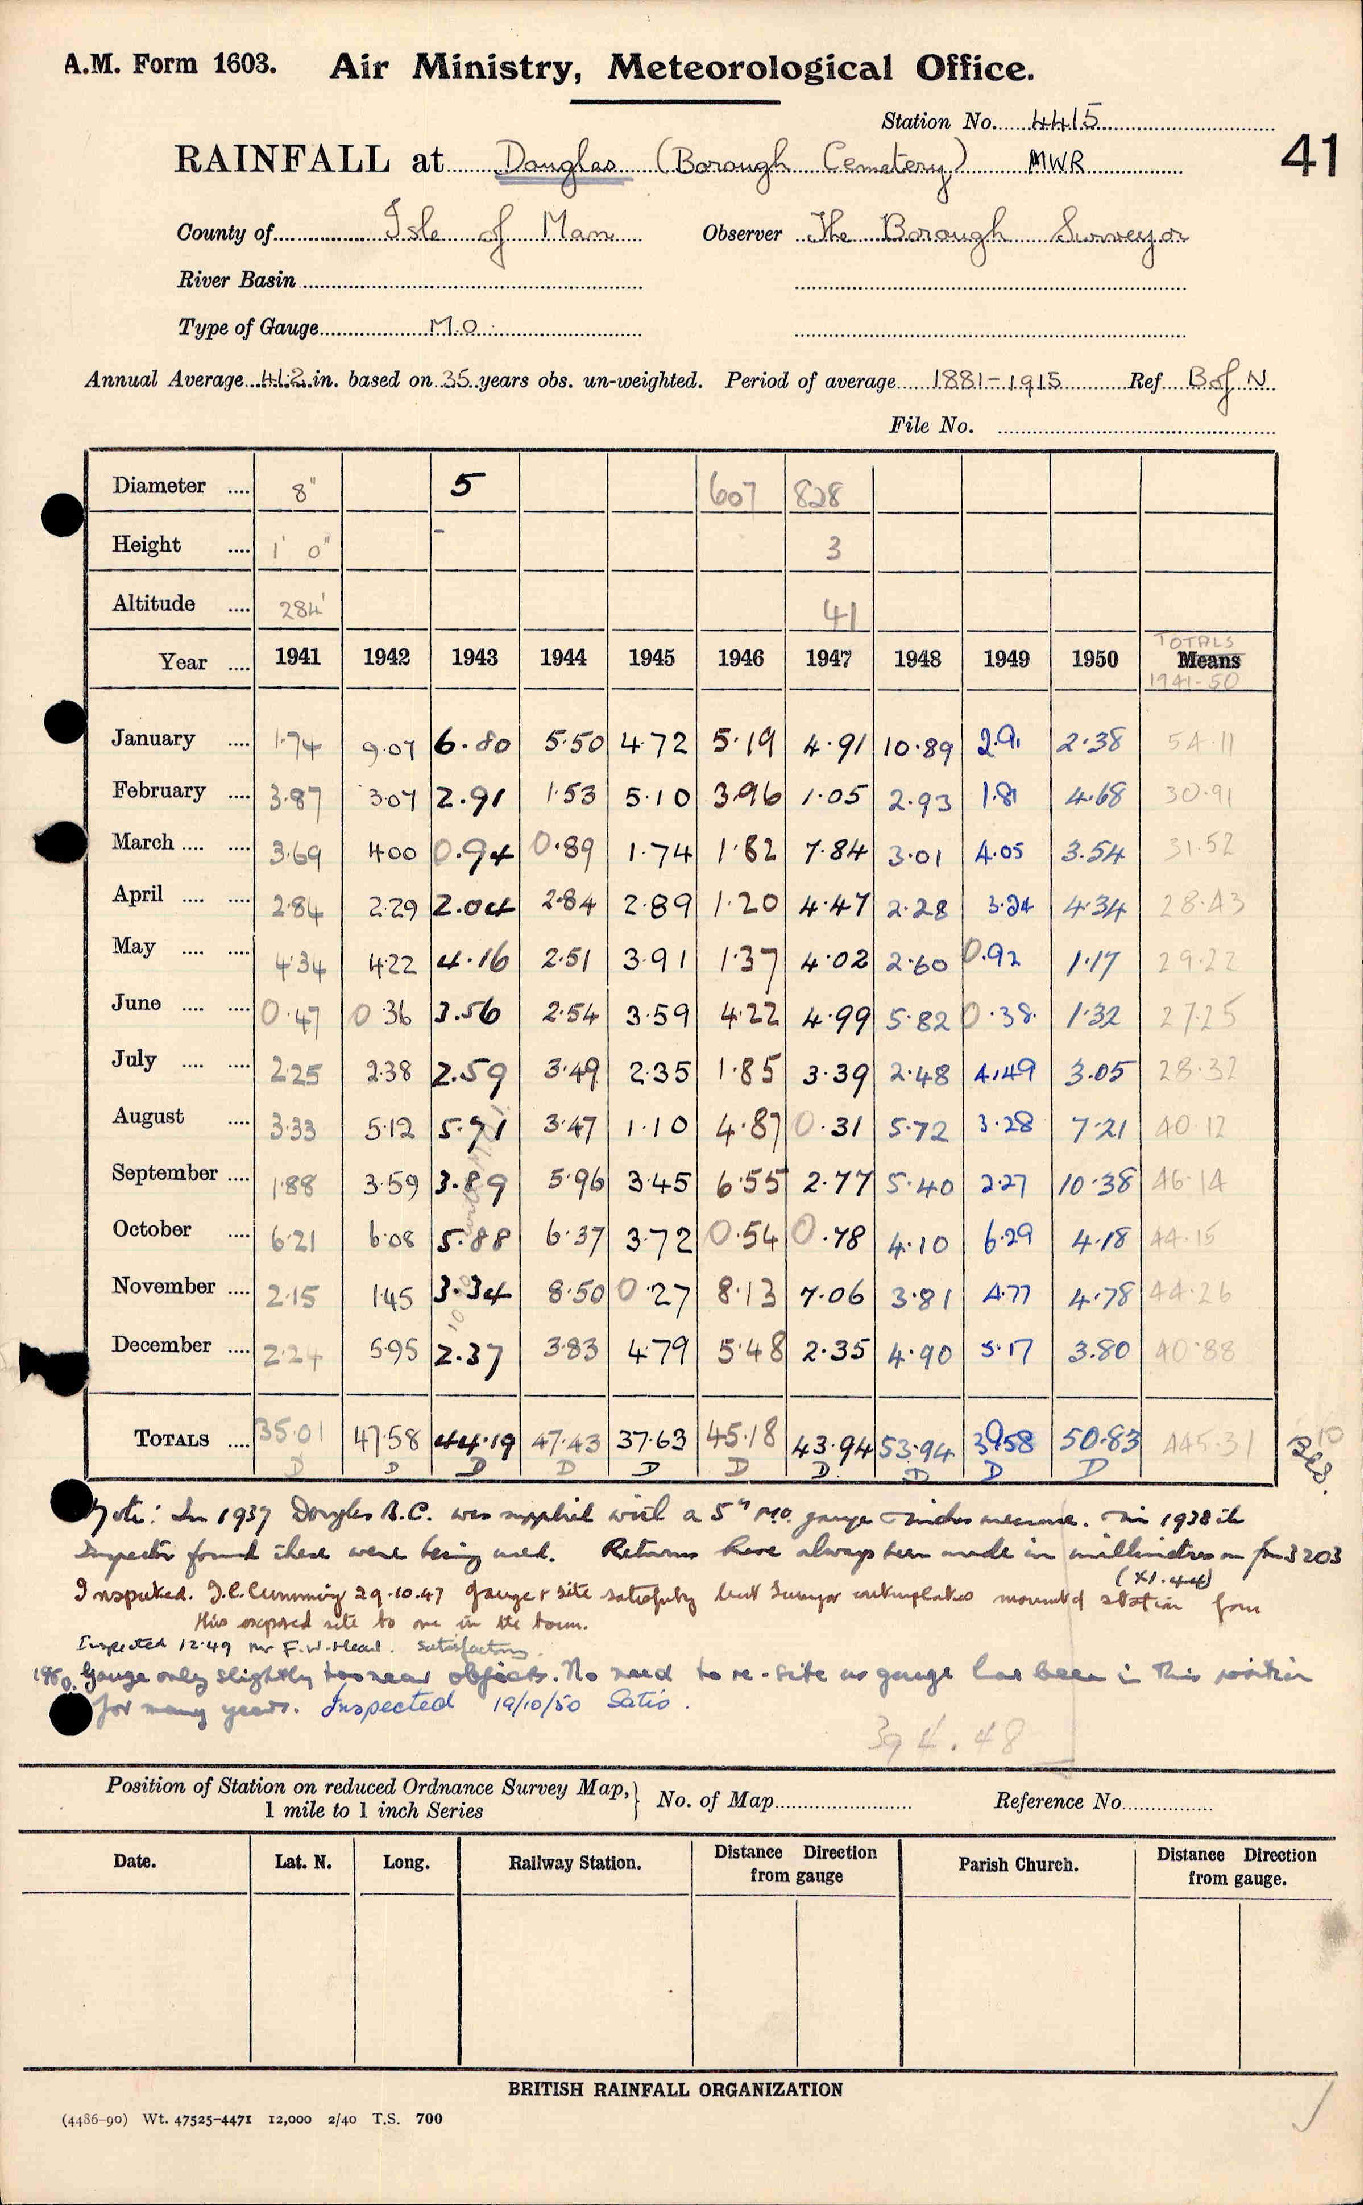 A.M. Form 1603. Air Ministry, Meteorological Office.
Station No. 4415
RAINFALL at Douglas (Borough Cemetery) MWR 41
County of Isle of Man Observer The Borough Surveyor
River Basin
Type of Gauge M.O.
Annual Average 41.2 in. based on 35 years obs. un-weighted. Period of average 1881-1915 Ref B of N
File No.
Diameter .... 8" 5 607 828
Height .... 1' 0" 3
Altitude .... 284' 41
Year .... 1941 1942 1943 1944 1945 1946 1947 1948 1949 1950 TOTALS Means 1941-50
January .... 1.74 9.07 6.80 5.50 4.72 5.19 4.91 10.89 2.91 2.38 54.11
February .... 3.87 3.07 2.91 1.53 5.10 3.96 1.05 2.93 1.81 4.68 30.91
March .... .... 3.69 4.00 0.94 0.89 1.74 1.82 7.84 3.01 4.05 3.54 31.52
April .... .... 2.84 2.29 2.04 2.84 2.89 1.20 4.47 2.28 3.24 4.34 28.43
May .... .... 4.34 4.22 4.16 2.51 3.91 1.37 4.02 2.60 0.92 1.17 29.22
June .... .... 0.47 0.36 3.56 2.54 3.59 4.22 4.99 5.82 0.38 1.32 27.25
July .... .... 2.25 2.38 2.59 3.49 2.35 1.85 3.39 2.48 4.49 3.05 28.32
August .... 3.33 5.12 5.71 3.47 1.10 4.87 0.31 5.72 3.28 7.21 40.12
September .... 1.88 3.59 3.89 5.96 3.45 6.55 2.77 5.40 2.27 10.38 46.14
October .... 6.21 6.08 5.88 6.37 3.72 0.54 0.78 4.10 6.29 4.18 44.15
November .... 2.15 1.45 3.34 8.50 0.27 8.13 7.06 3.81 4.77 4.78 44.26
December .... 2.24 5.95 2.37 3.83 4.79 5.48 2.35 4.90 5.17 3.80 40.88
TOTALS .... 35.01 47.58 44.19 47.43 37.63 45.18 43.94 53.94 39.58 50.83 445.31
D D D D D D D D D D
Note: In 1937 Douglas B.C. was supplied with a 5" M.O. gauge inches measure. In 1938 the
Inspector found these were being used. Returns have always been made in millimetres on form 3203
(x1.44)
Inspected. J.C. Cumming 29.10.47 Gauge & site satisfactory but Surveyor contemplates removal of station from
this exposed site to one in the town.
Inspected 12.49 Mr F.W. Head. Satisfactory.
1950. Gauge only slightly too near objects. No need to re-site as gauge has been in this position
for many years. Inspected 19/10/50 Satis.
394.48
Position of Station on reduced Ordnance Survey Map, 1 mile to 1 inch Series } No. of Map Reference No.
Date. Lat. N. Long. Railway Station. Distance Direction from gauge Parish Church. Distance Direction from gauge.
BRITISH RAINFALL ORGANIZATION
(4486-90) Wt. 47525-4471 12,000 2/40 T.S. 700